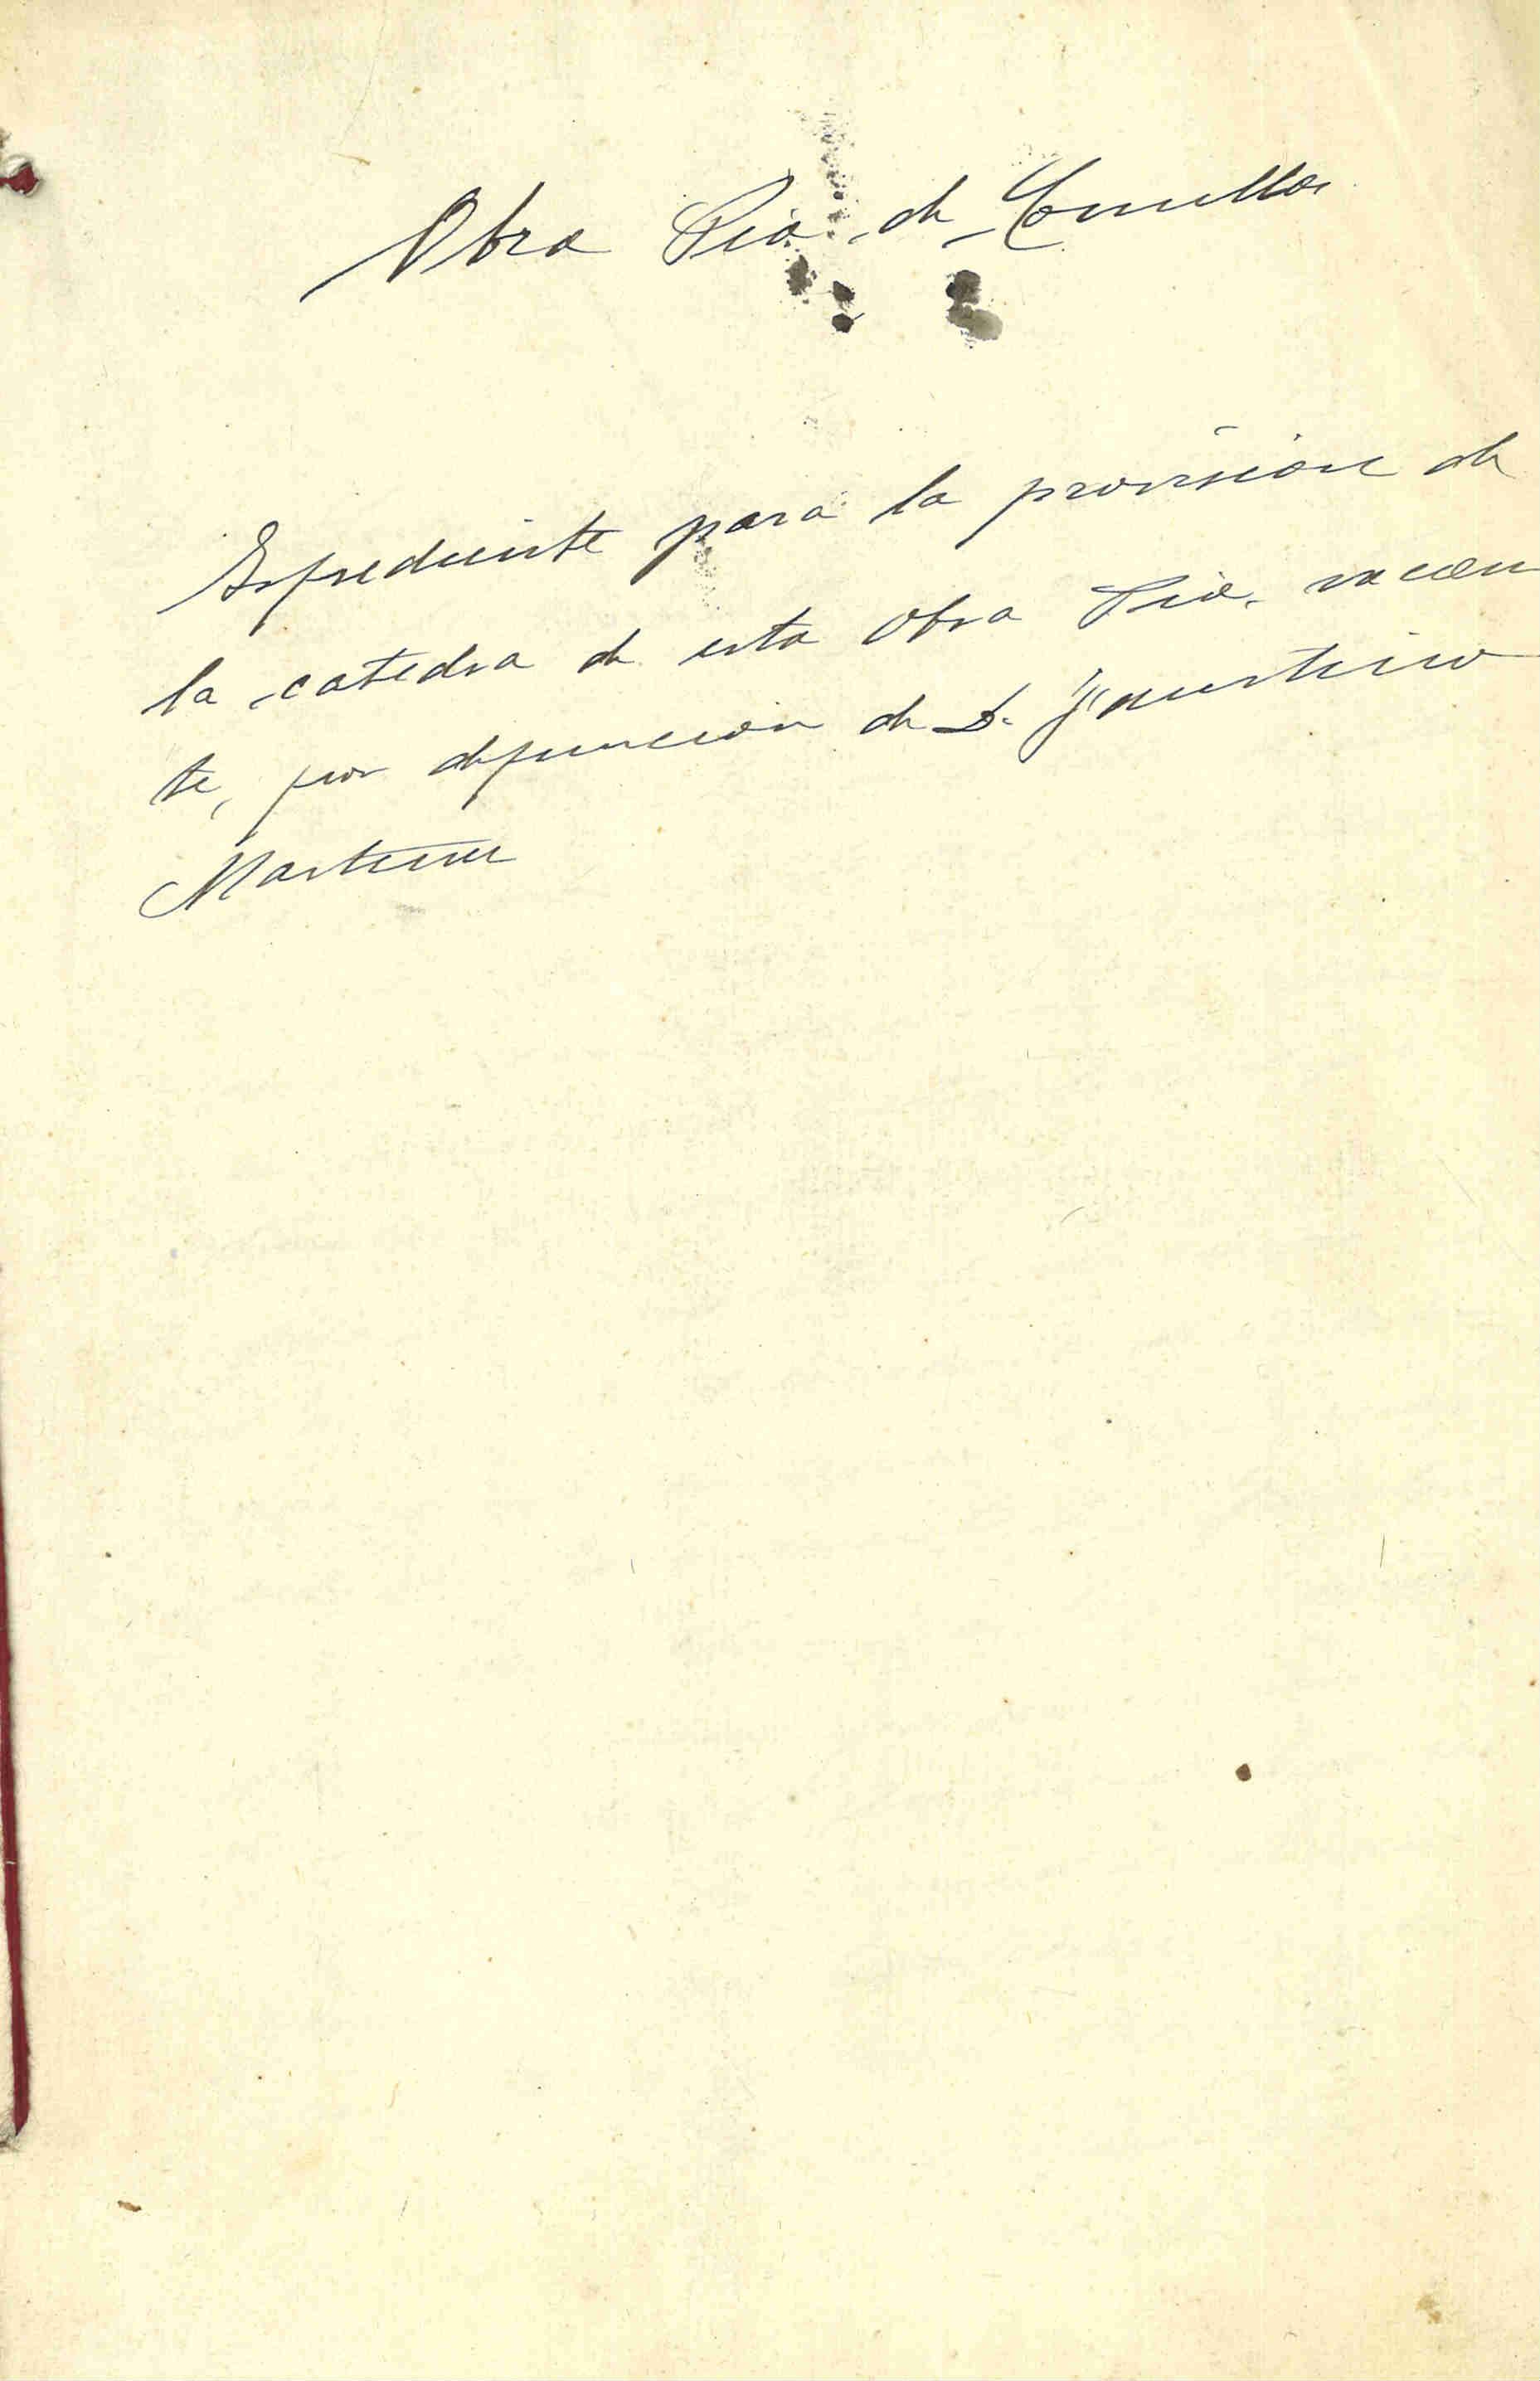 Obra Pia de Comillas
Expediente para la provisión de
la catedra de esta Obra Pia, vacan
te, por defunción de D. Faustino
Martinez